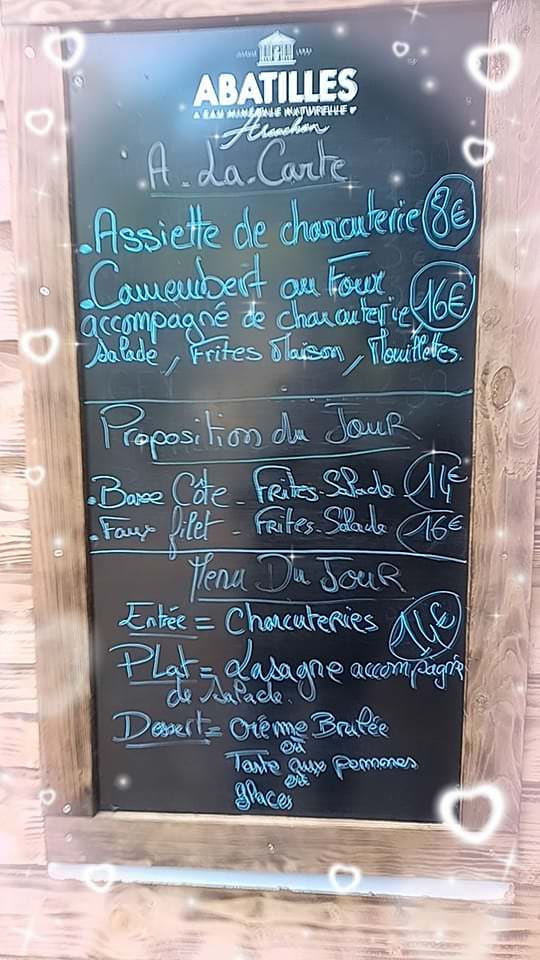 ABATILLES
EAU MINERALE NATURELLE
Arcachon
A - La - Carte
. Assiette de charcuterie 8€
. Camembert au Four
accompagné de charcuterie 16€
Salade, Frites Maison, Mouillettes.
Proposition du Jour
. Basse Côte - Frites - Salade 14€
. Faux filet - Frites - Salade 16€
Menu Du Jour
Entrée = Charcuteries 14€
PLat = Lasagne accompagnée
de Salade.
Dessert = Crème Brulée
ou
Tarte aux pommes
ou
glaces